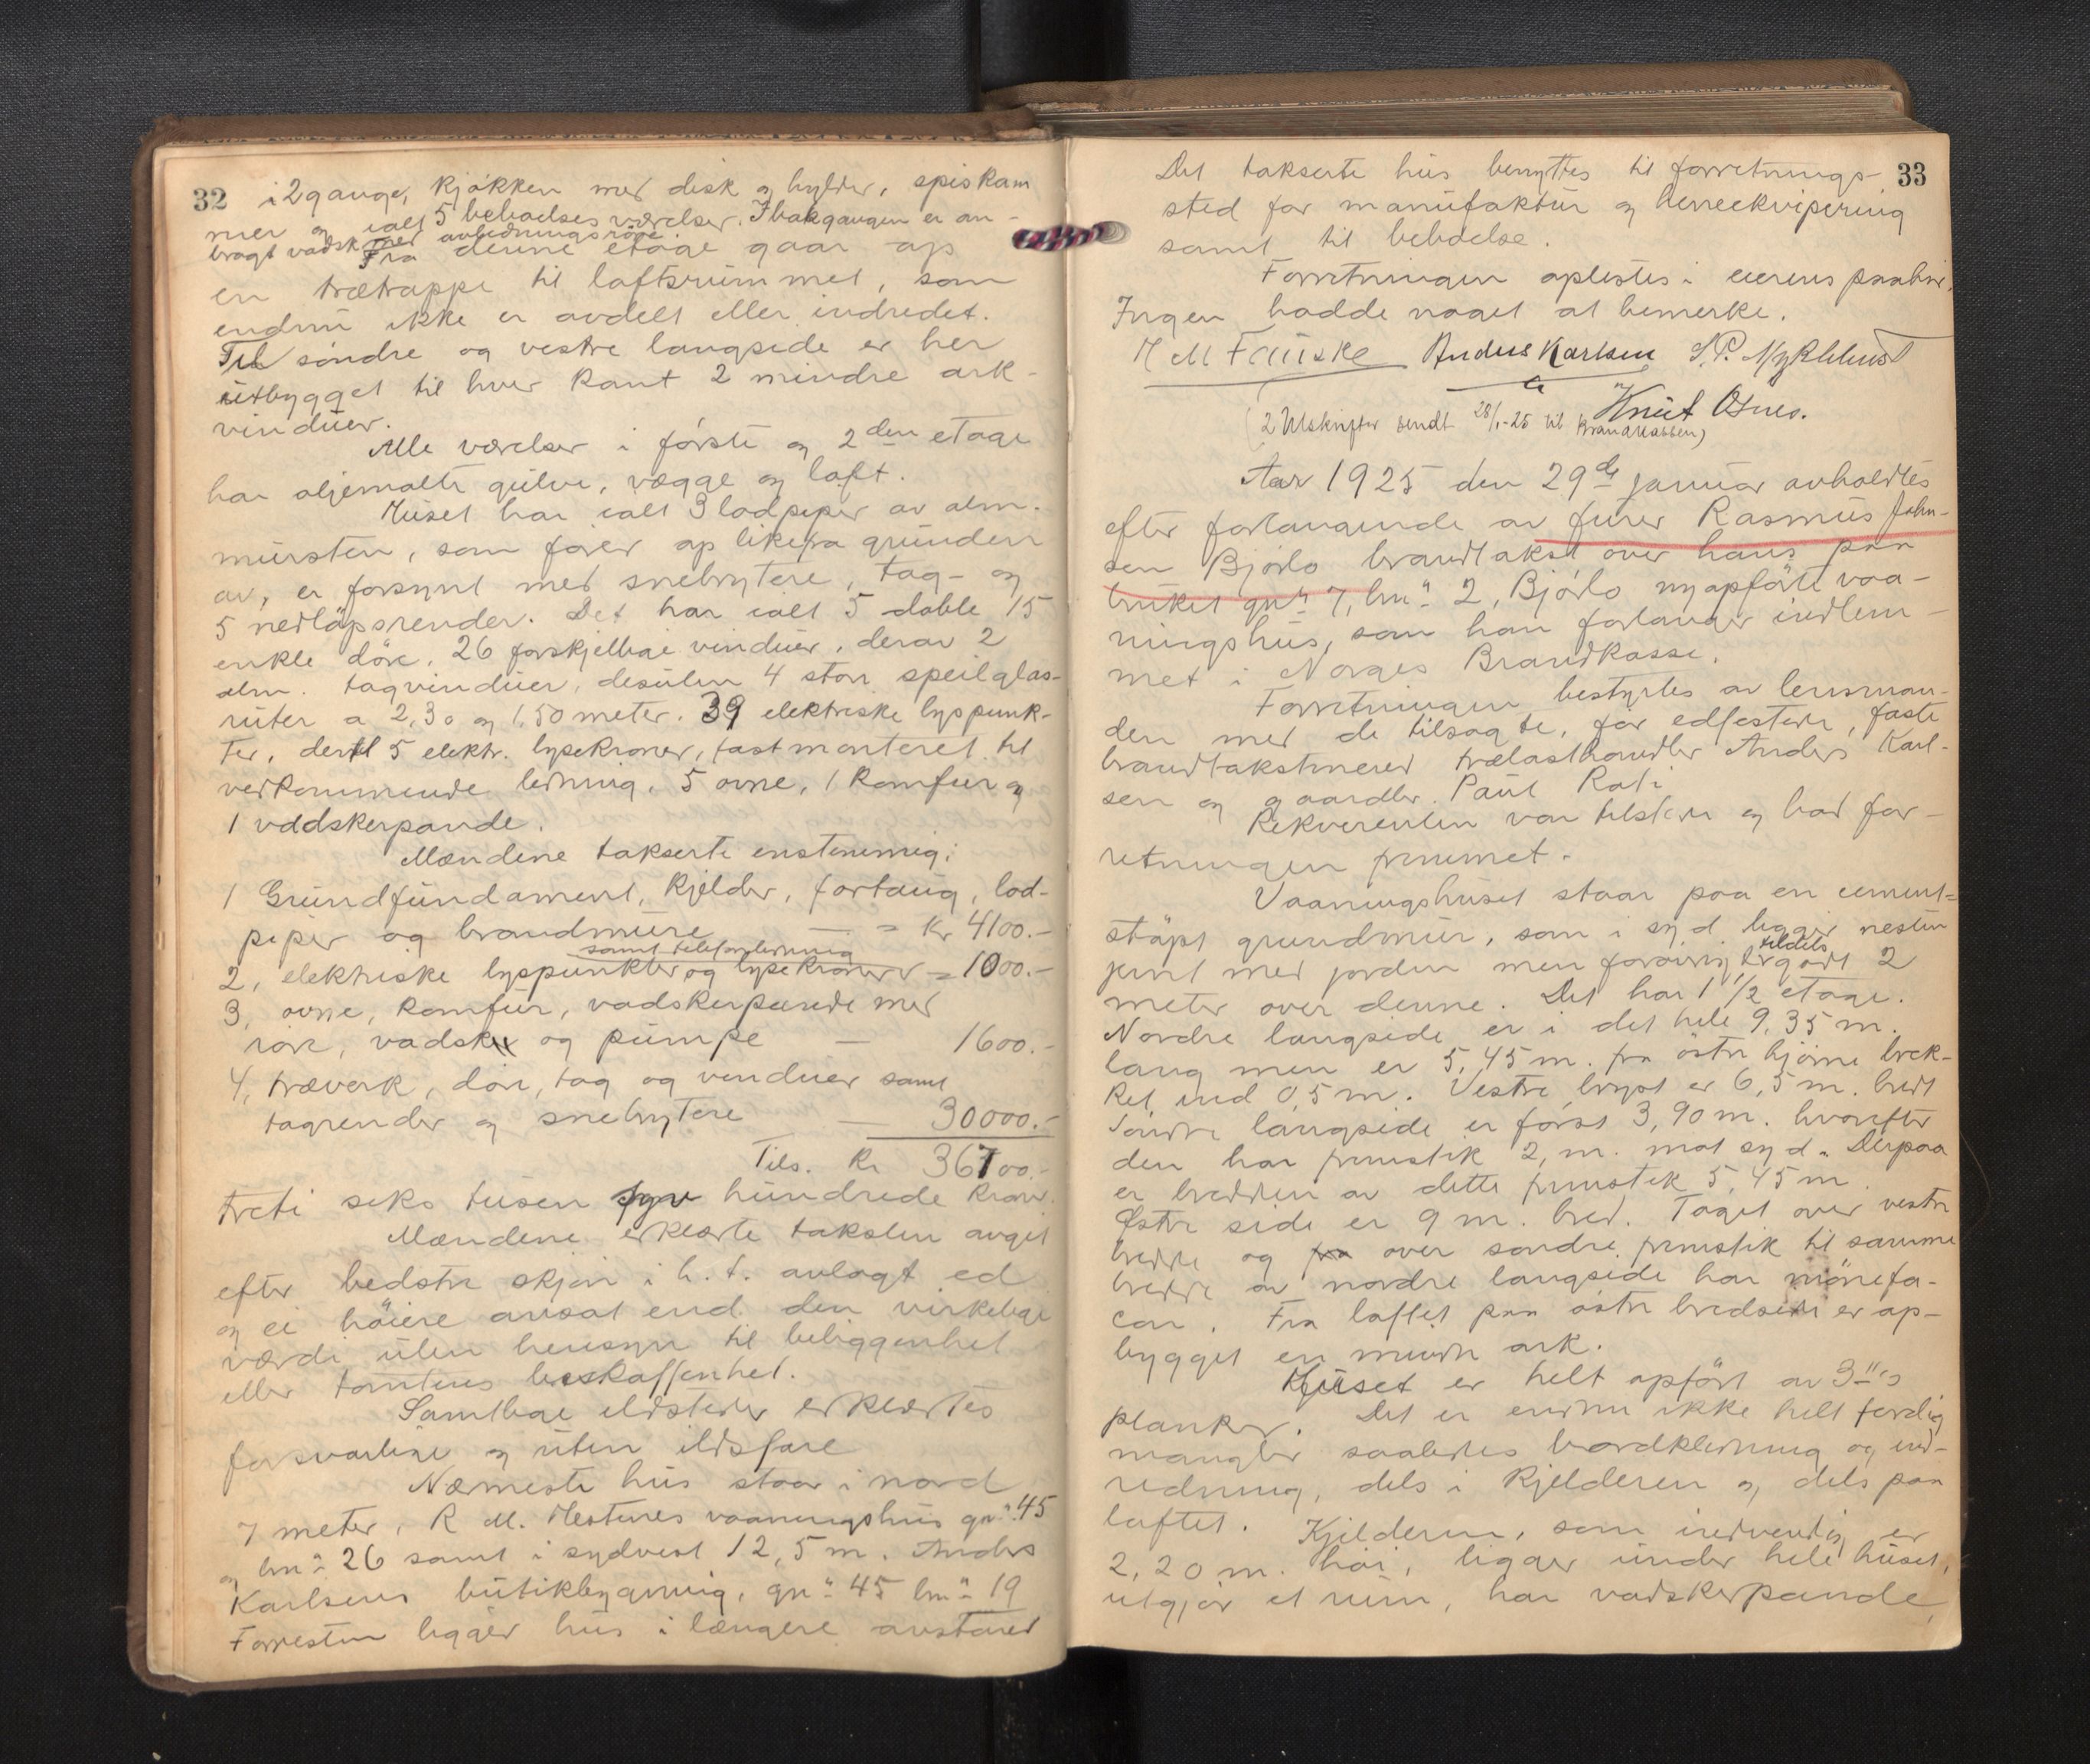 32
i 2 gange, kjøkken med disk og hylder, spiskam
mer og ialt 5 beboelsesværelser. I bakgangen er an-
bragt vadsk med avledningsrør.
Fra denne etage gaar op
en trætrappe til loftsrummet, som
endnu ikke er avdelt eller indredet.
Til söndre og vestre langside er her
utbygget til hver kant 2 mindre ark-
vinduer.
Alle værelser i første og 2den etage
har oljemalte gulve, vægge og loft.
Huset har ialt 3 lodpiper av alm.
mursten, som fører op likefra grunden
av, er forsynt med snebrytere, tag- og
5 nedløpsrender. Det har ialt 5 doble 15
enkle döre, 26 forskjellige vinduer, derav 2
alm. tagvinduer, desuten 4 stor speilglas-
ruter a 2,30 og 1,50 meter. 39 elektriske lyspunk-
ter, dertil 5 elektr. lysekroner, fast monteret til
vedkommende ledning, 5 ovne, 1 komfur og
1 vadskerpande.
Mændene takserte enstemmig:
1 Grundfundament, kjelder, fortaug, lod-
piper og brandmure — = Kr 4100.-
samt telefonledning
2, elektriske lyspunkter og lysekroner = 1000.-
3, ovne, komfur, vadskerpande med
rör, vadsk og pumpe — 1600.-
4, træverk, döre, tag og vinduer samt
tagrender og snebrytere — 30000.-
Tils. Kr 36700.-
treti seks tusen syv hundrede kron.
Mændene erklærte taksten avgit
efter bedste skjøn i h. t. avlagt ed
og ei høiere ansat end den virkelige
værdi uten hensyn til beliggenhet
eller tomtens beskaffenhet.
Samtlige ildsteder erklærtes
forsvarlige og uten ildsfare
Nærmeste hus staar i nord
7 meter, R M. Hestnes vaaningshus gnr. 45
og bnr. 26 samt i sydvest 12,5 m. Anders
Karlsens butikbygning, gnr. 45 bnr. 19
Forresten ligger hus i længere avstand
33
Det takserte hus benyttes til forretnings-
sted for manufaktur og herreekvipering
samt til beboelse.
Forretningen oplestes i eierens paahør,
Ingen hadde noget at bemerke.
H M Fauske Anders Karlsen S. P. Myklebust
Knut Osnes.
(2 Utskrifter sendt 28/1-25 til Brandkassen)
Aar 1925 den 29de januar avholdtes
efter forlangende av furer Rasmus John-
sen Bjørlo brandtakst over hans paa
bruket gnr. 7, bnr. 2, Bjørlo nyopførte vaa-
ningshus, som han forlanger indlem-
met i Norges Brandkasse.
Forretningen bestyrtes av lensman-
den med de tilsagte, før edfestede, faste
brandtakstmænd trælasthandler Anders Karl-
sen og gaardbr. Paul Roti
Rekvirenten var tilstede og bad for-
retningen fremmet.
Vaaningshuset staar paa en cement-
støpt grundmur, som i syd ligger nesten
jevnt med jorden men forøvrig tildels er godt 2
meter over denne. Det har 1 1/2 etage.
Nordre langside er i det hele 9,35 m.
lang men er 5,45 m. fra östre hjörne bræk-
ket ind 0,5 m. Vestre bryst er 6,5 m. bredt
Söndre langside er først 3,90 m. hvorefter
den har fremstik 2, m. mot syd. Derpaa
er bredden av dette fremstik 5,45 m.
Østre side er 9 m. bred. Taget over vestre
bredde og over søndre fremstik til samme
bredde av nordre langside har mønefa-
con. Fra loftet paa østre bredside er op-
bygget en mindre ark.
Huset er helt opført av 3"s
planker. Det er endnu ikke helt ferdig
mangler saaledes bordklædning og ind-
redning, dels i kjelderen og dels paa
loftet. Kjelderen, som indvendig er
2,20 m. høi, ligger under hele huset,
utgjør et rum, har vadskerpande,